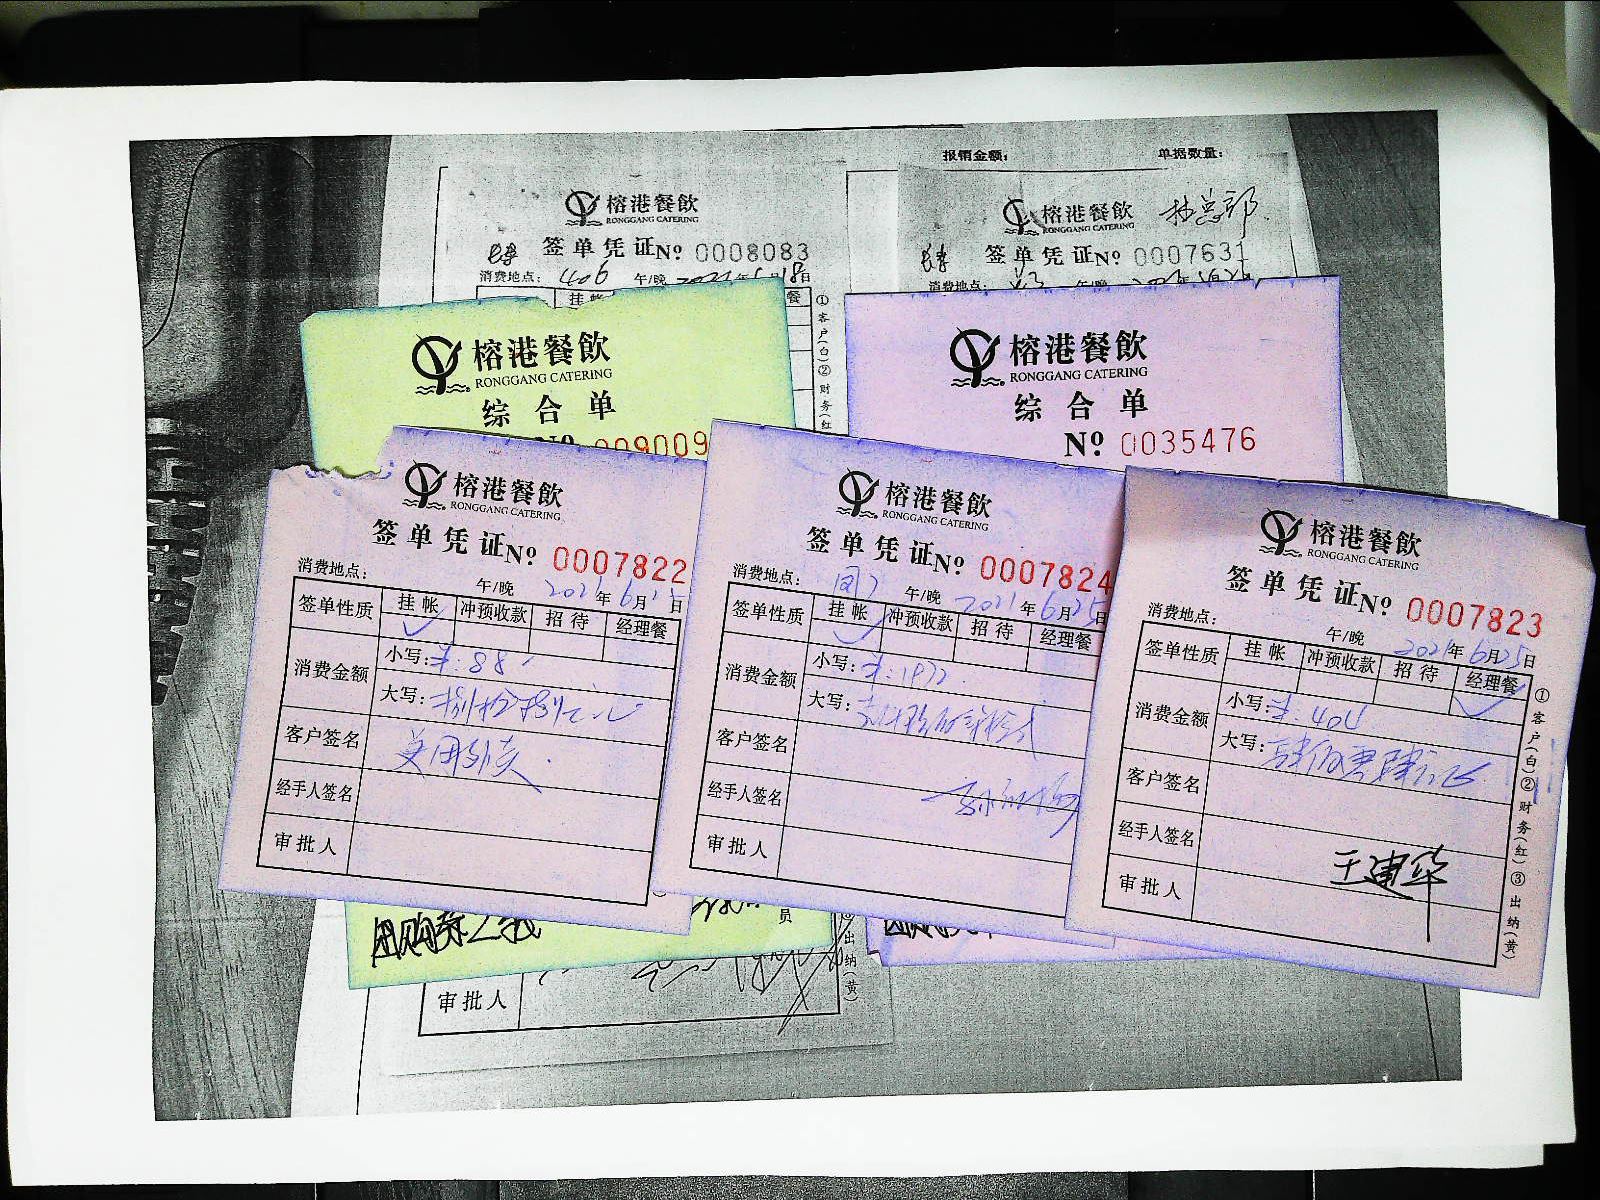 报销金额： 单据数量：
榕港餐飲
RONGGANG CATERING
签单凭证№ 0008083
消费地点： 406 午/晚
挂帐 餐
①客户(白)②财务(红
榕港餐飲
RONGGANG CATERING
签单凭证№ 0007631
消费地点： 午/晚
榕港餐飲
RONGGANG CATERING
综合单
№ 009009
榕港餐飲
RONGGANG CATERING
综合单
№ 0035476
榕港餐飲
RONGGANG CATERING
签单凭证№ 0007822
消费地点： 午/晚 2021年6月 日
签单性质 挂帐 冲预收款 招待 经理餐
消费金额 小写：¥：88
大写：捌拾捌元
客户签名
经手人签名
审批人
榕港餐飲
RONGGANG CATERING
签单凭证№ 0007824
消费地点： 午/晚 2021年6月25日
签单性质 挂帐 冲预收款 招待 经理餐
消费金额 小写：
大写：
客户签名
经手人签名
审批人
榕港餐飲
RONGGANG CATERING
签单凭证№ 0007823
消费地点： 午/晚 2021年6月25日
签单性质 挂帐 冲预收款 招待 经理餐
消费金额 小写：¥：404
大写：
客户签名
经手人签名
王建华
审批人
①客户(白)②财务(红)③出纳(黄)
员
出纳(黄)
审批人